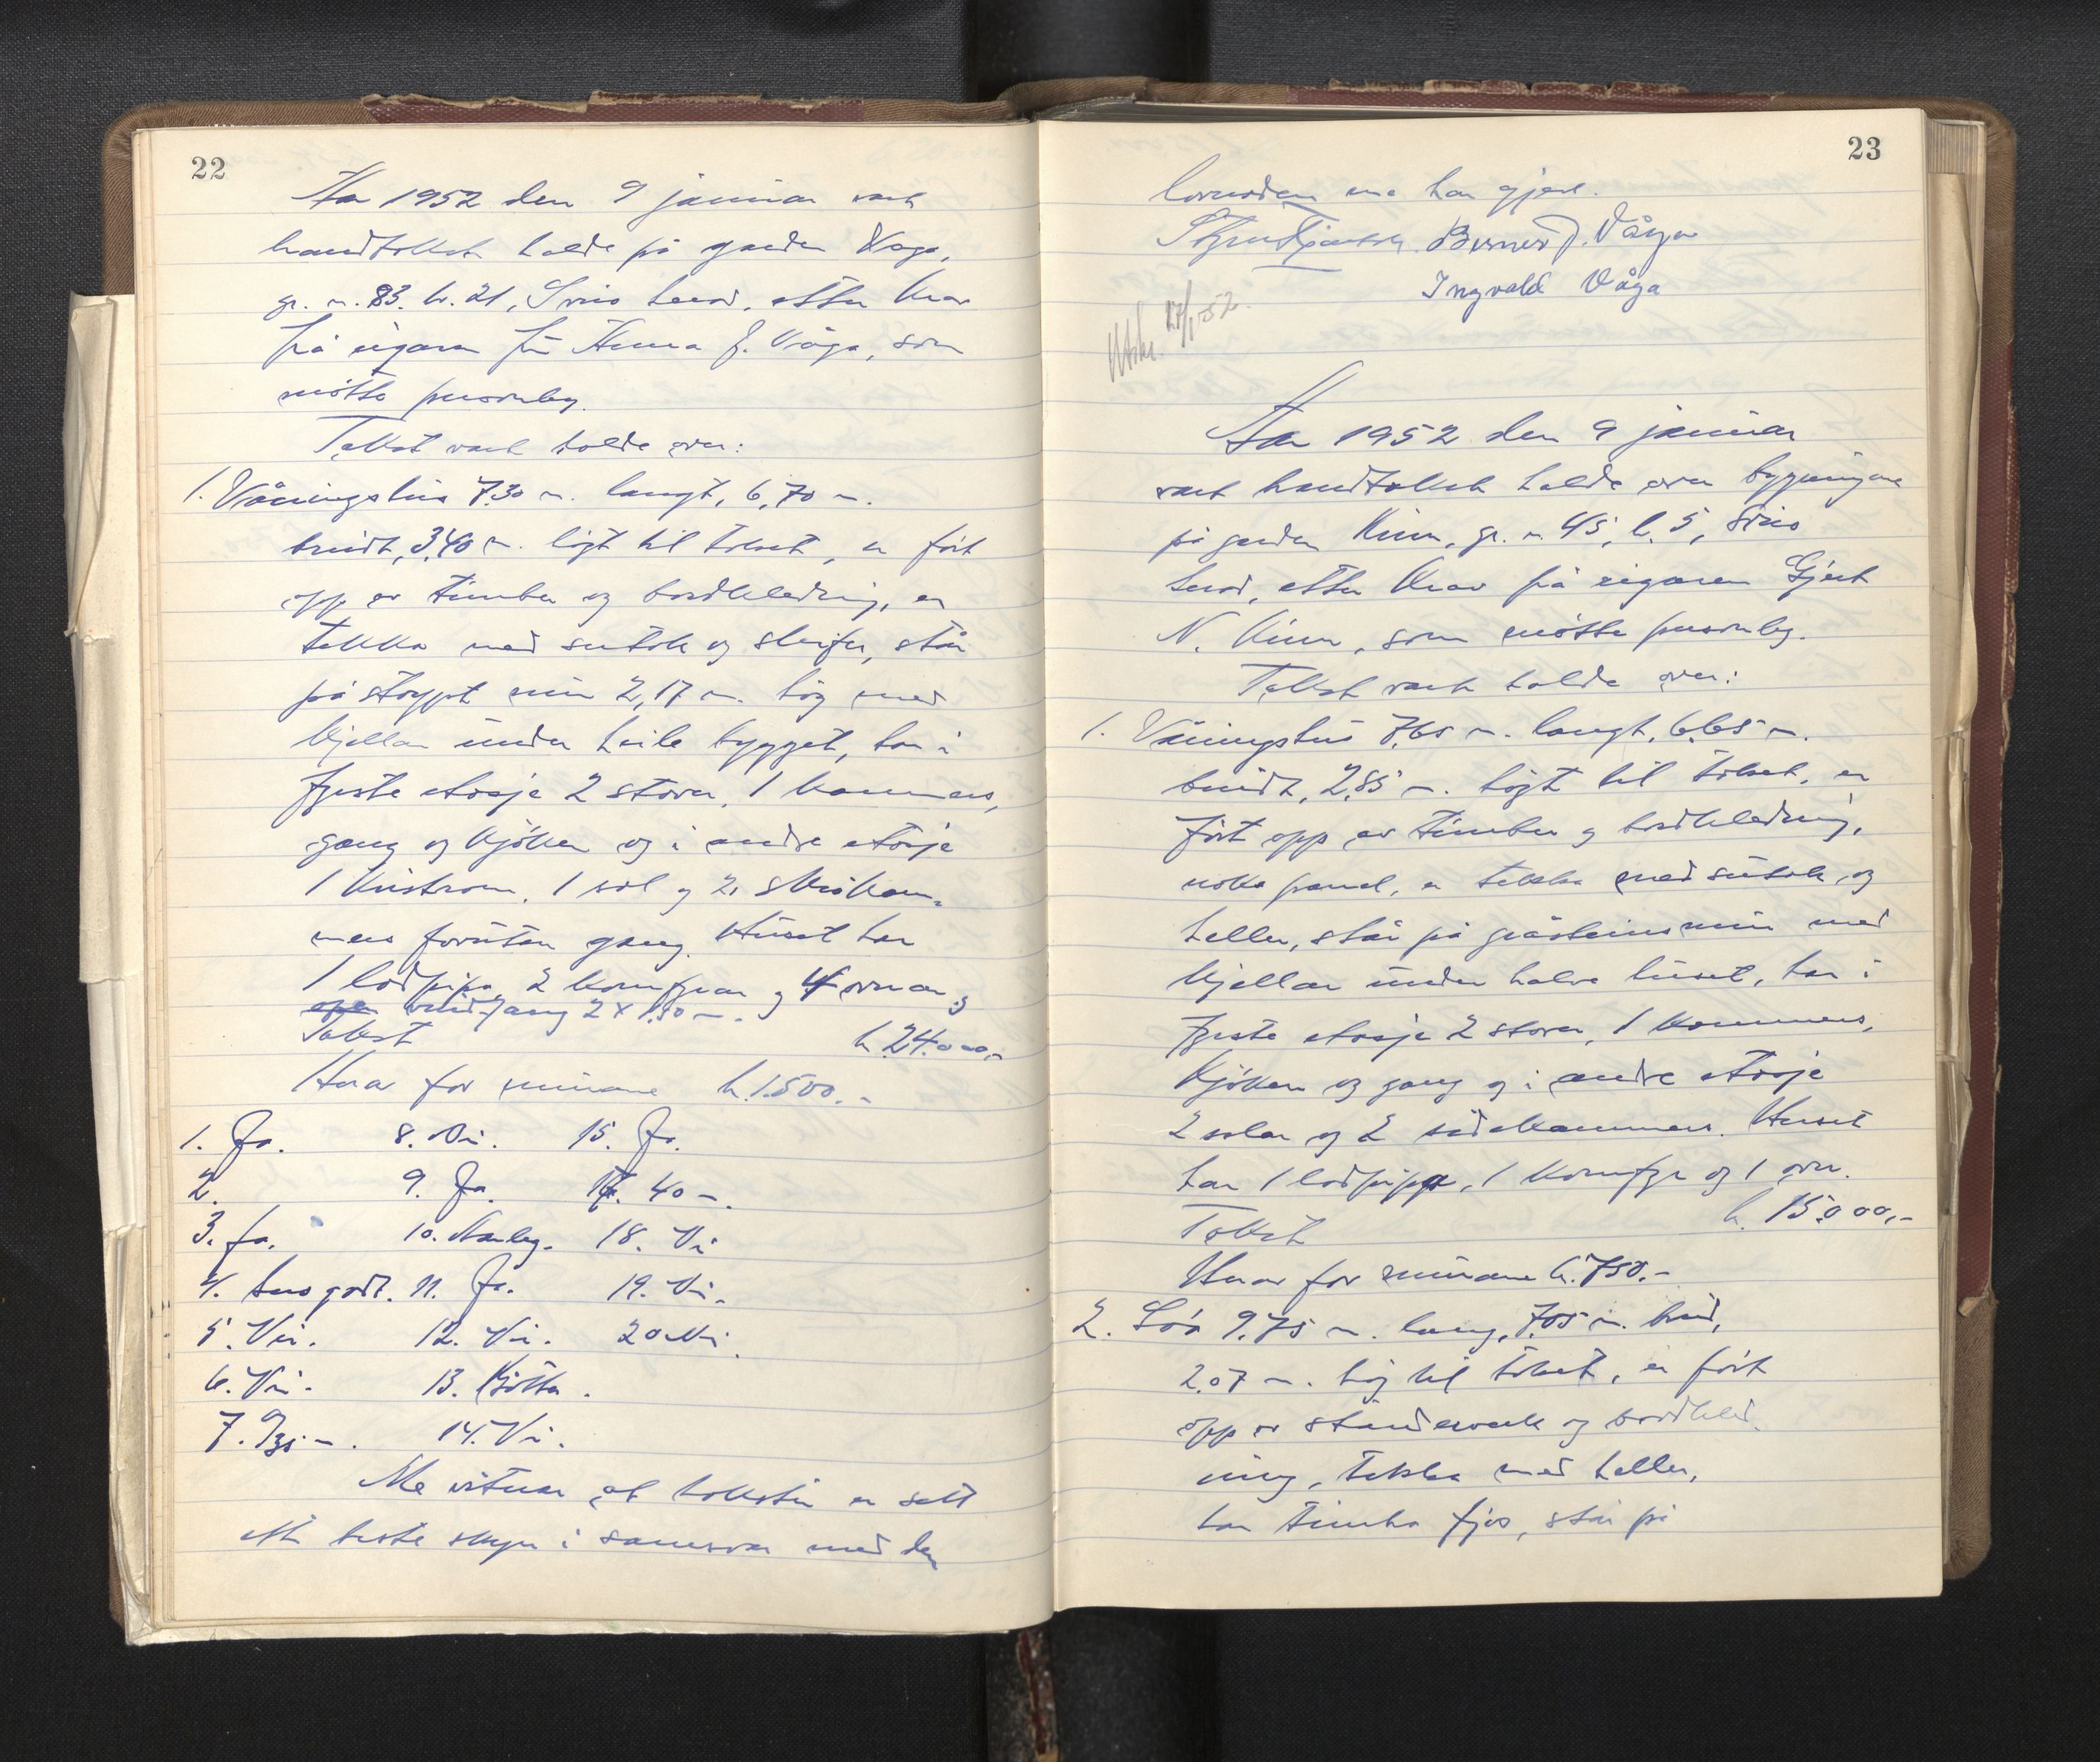 22
Aar 1952 den 9 januar vart
brandtakst halde på garden Vaga,
gr. n. 83. b. 21, Sveio herad, etter krav
frå eigaren frú Anna J. Våga, som
møtte personleg.
Takst vart halde over:
1. Våningshus 7.30 m. langt, 6,70 m.
breidt, 3,40 m. høgt til taket, er ført
opp av timber og bordkledning, er
tekka med sutak og skifer, står
på støypt mur 2,17 m. høg med
kjellar under heile bygget, har i
fyrste etasje 2 stover, 1 kammers,
gang og kjøken og i andre etasje
1 kvistrom, 1 sal og 2 skråkam-
mers forutan gang. Huset har
1 lodpipa, 2 komfyrar og 4 ovnar og
vindfang 2 x 1.50 m.
Takst k. 24.000,-
Herav for murane k. 1500.-
1. Ja. 8. Nei. 15. Ja.
2. 9. Ja. 17. 40 m.
3. Ja. 10. Vanleg. 18. Nei
4. Sers godt. 11. Ja. 19. Nei.
5. Nei. 12. Nei. 20. Nei.
6. Nei. 13. Bøtta.
7. 35 m. 14. Nei.
Me vitnar at taksten er sett
etter beste skyn i samsvar med den
23
lovnaden me har gjeve.
Berner J. Våga
Ingvald Våga
Utskr. 17/1-52.
Aar 1952 den 9 januar
vart brandtakst halde over bygningane
på garden Kinn, gr. n. 45, b. 5, Sveio
herad, etter krav frå eigaren Gjert
N. Kinn, som møtte personleg.
Takst vart halde over:
1. Våningshus 7.65 m. langt, 6.65 m.
breidt, 2,85 m. høgt til taket, er
ført opp av timber og bordkledning,
noko panel, er tekka med sutak og
heller, står på gråsteinsmur med
kjellar under halve huset, har i
fyrste etasje 2 stover, 1 kammers,
kjøken og gang og i andre etasje
2 salar og 2 sidekammers. Huset
har 1 lodpipa, 1 komfyr og 1 ovn.
Takst k. 15.000,-
Herav for murane k. 750.-
2. Løa 9.75 m. lang, 7.05 m. breid,
2.07 m. høg til taket, er ført
opp av standerverk og bordkled-
ning, tekka med heller,
har timbra fjøs, står på